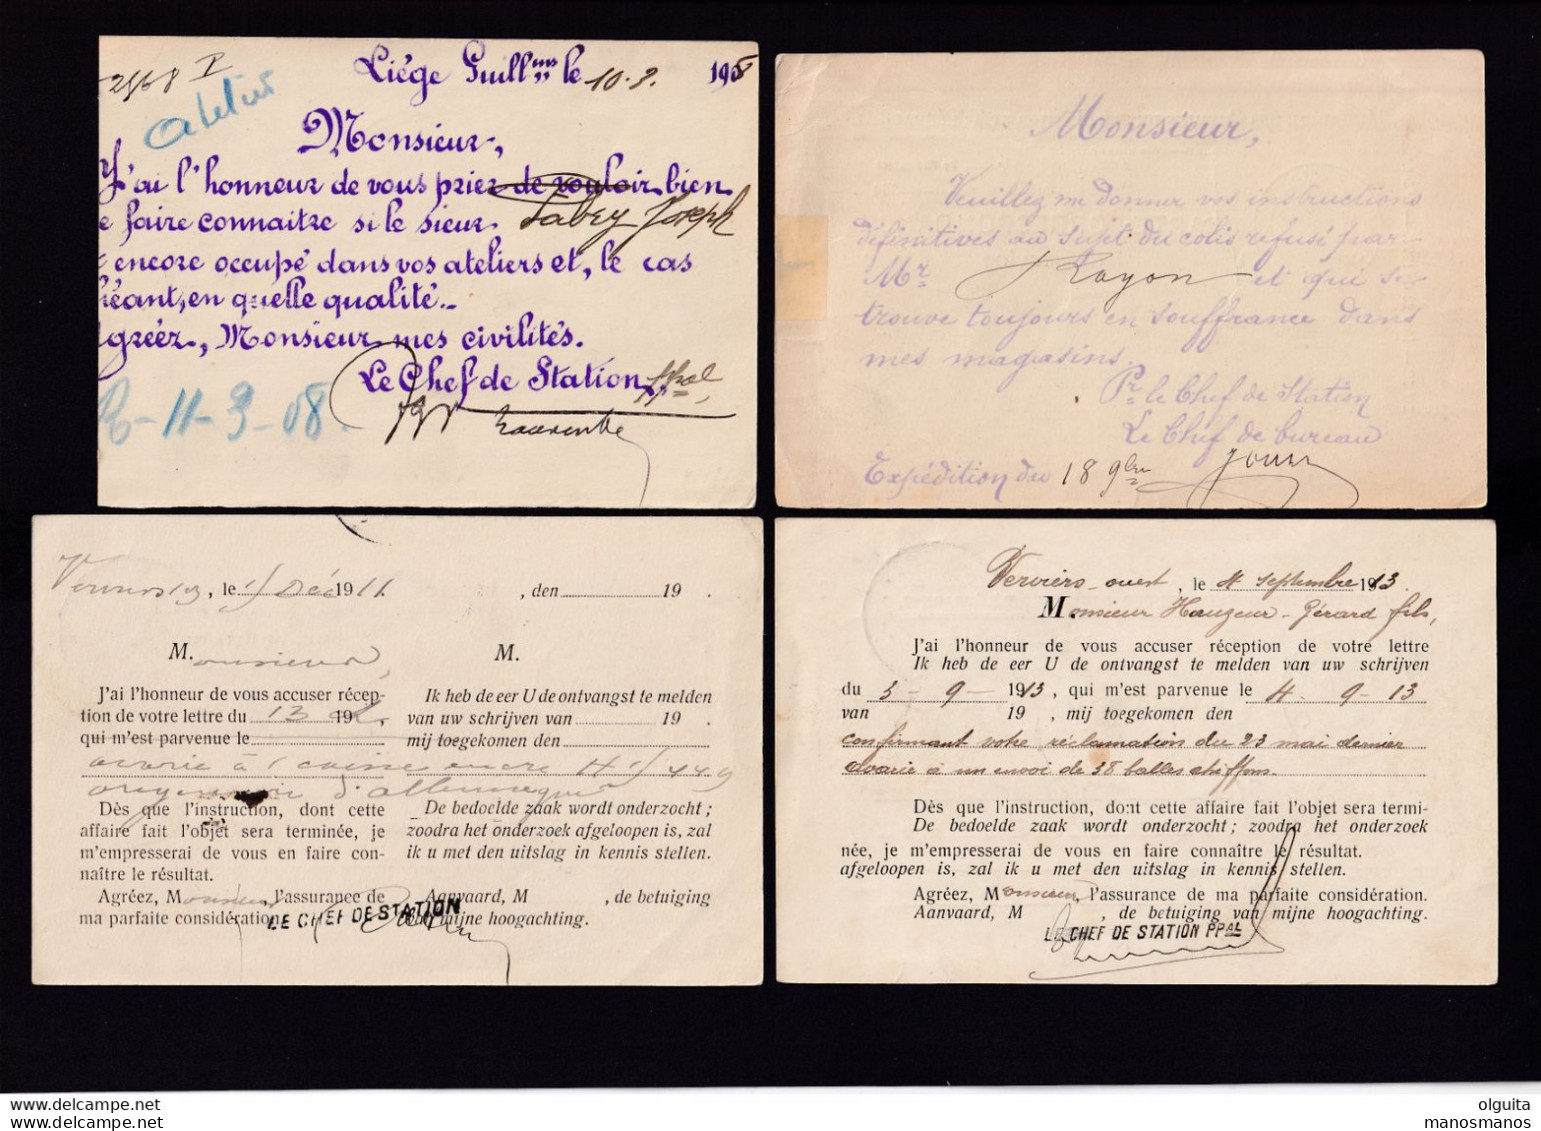 2568 P
Liége Guill.ms le 10.3. 1908
atelier
Monsieur,
J'ai l'honneur de vous prier de vouloir bien
e faire connaitre si le sieur Fabry Joseph
encore occupé dans vos ateliers et, le cas
héant, en quelle qualité.
gréez, Monsieur mes civilités.
Le Chef de Station ppal,
R-11-3-08.
Monsieur,
Veuillez me donner vos instructions
définitives au sujet du colis refusé par
Mr Rayon et qui se
trouve toujours en souffrance dans
mes magasins.
Pr le Chef de Station
Le Chef de bureau
Expédition du 18 9bre
, le 15 Déc 1911
, den 19 .
Monsieur,
M.
J'ai l'honneur de vous accuser récep-
tion de votre lettre du 13 ct 19 ,
qui m'est parvenue le
avarie à 1 caisse encre
d'allemagne
Dès que l'instruction, dont cette
affaire fait l'objet sera terminée, je
m'empresserai de vous en faire con-
naître le résultat.
Agréez, Monsieur, l'assurance de
ma parfaite considération.
LE CHEF DE STATION
Ik heb de eer U de ontvangst te melden
van uw schrijven van 19 .
mij toegekomen den
De bedoelde zaak wordt onderzocht ;
zoodra het onderzoek afgeloopen is, zal
ik u met den uitslag in kennis stellen.
Aanvaard, M , de betuiging
mijne hoogachting.
Verviers-ouest, le 4 septembre 1913.
Monsieur Hauzeur-Gérard fils,
J'ai l'honneur de vous accuser réception de votre lettre
Ik heb de eer U de ontvangst te melden van uw schrijven
du 3 - 9 - 1913, qui m'est parvenue le 4. 9 - 13
van 19 , mij toegekomen den
confirmant votre réclamation du 23 mai dernier
avarie à un envoi de 38 balles chiffons.
Dès que l'instruction, dont cette affaire fait l'objet sera termi-
De bedoelde zaak wordt onderzocht ; zoodra het onderzoek
née, je m'empresserai de vous en faire connaître le résultat.
afgeloopen is, zal ik u met den uitslag in kennis stellen.
Agréez, Monsieur, l'assurance de ma parfaite considération.
Aanvaard, M , de betuiging van mijne hoogachting.
LE CHEF DE STATION PPAL
olguita
manosmanos